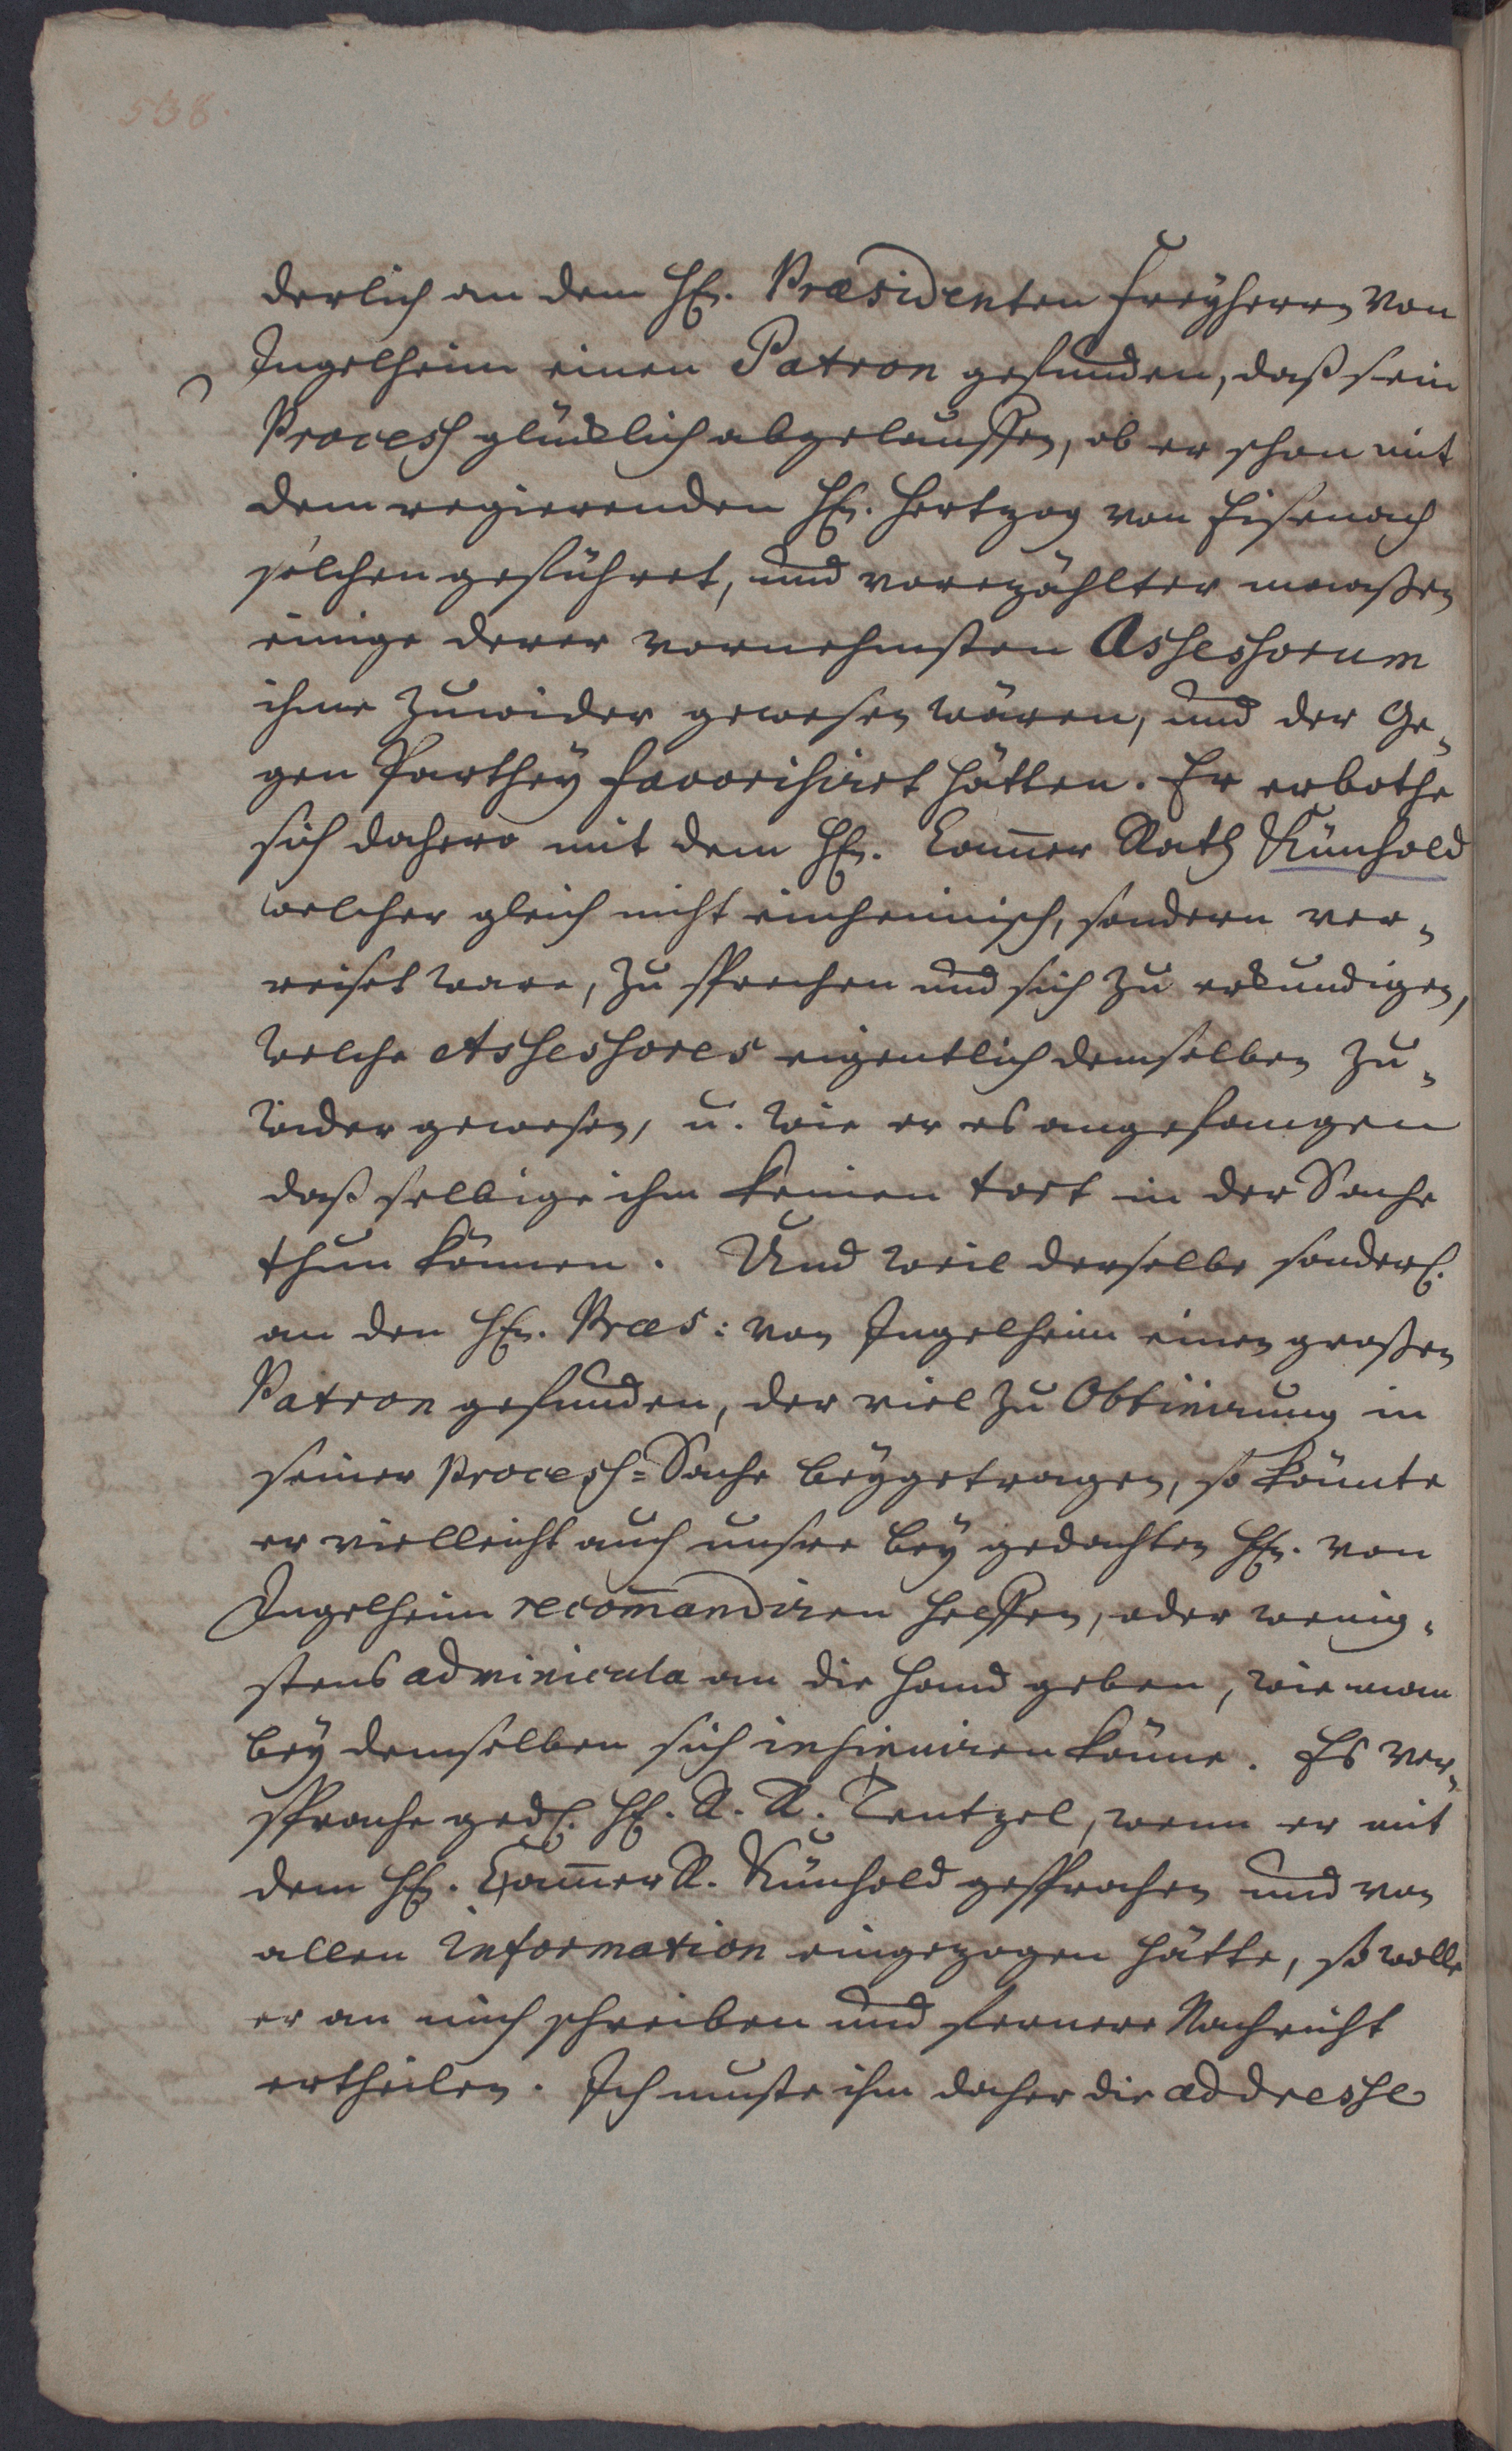 538.
derlich an dem Hn. Præsidenten Freyherrn von
Ingelheim einen Patron gefunden, daß sein
Process glücklich abgelauffen, ob er schon mit
dem regierenden Hn. Hertzog von Eisenach
solchen geführet, und vorerzählter maaßen
einige derer vornehmsten Assessorum
ihme zuwider gewesen wären, und der Ge-
gen Parthey favorisiret hätten. Er erbothe
sich dahero mit dem Hn. Cam̄er Rath Künhold
welcher gleich nicht einheimisch, sondern ver-
reiset ware, zu sprechen und sich zu erkundigen,
welche Assessores eigentlich demselben zu-
wider gewesen, u. wie er es angefangen
daß selbige ihm keinen tort in der Sache
thun können. Und weil derselbe sonderl.
an den Hn. Præs: von Ingelheim einen großen
Patron gefunden, der viel zu Obtinirung in
seiner Process-Sache beygetragen, so könnte
er vielleicht auch unsre bey gedachten Hn. von
Ingelheim recom̄andiren helffen, oder wenig-
stens adminicula an die Hand geben, wie man
bey demselben sich insinuiren könne. Es ver-
sprache ged. H. R. R. Tentzel, wenn er mit
dem H. Cam̄er R. Künhold gesprochen und von
allen Information eingezogen hätte, so wolle
er an mich schreiben und fernere Nachricht
ertheilen. Ich muste ihm daher die addresse